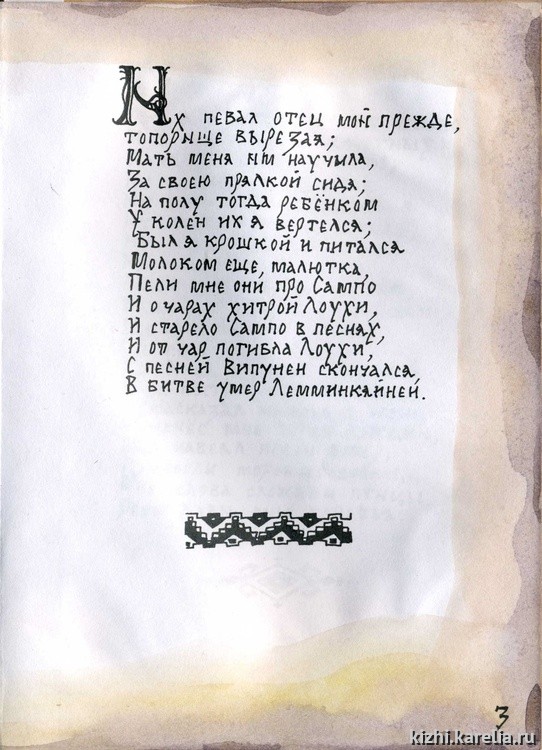 Их певал отец мой прежде,
топорище вырезая;
Мать меня им научила,
За своею прялкой сидя;
На полу тогда ребёнком
У колен их я вертелся;
Был я крошкой и питался
Молоком еще, малютка,
Пели мне они про Сампо
И о чарах хитрой Лоухи,
И старело Сампо в песнях,
И от чар погибла Лоухи,
С песней Випунен скончался,
В битве умер Лемминкяйней.
3
kizhi.karelia.ru